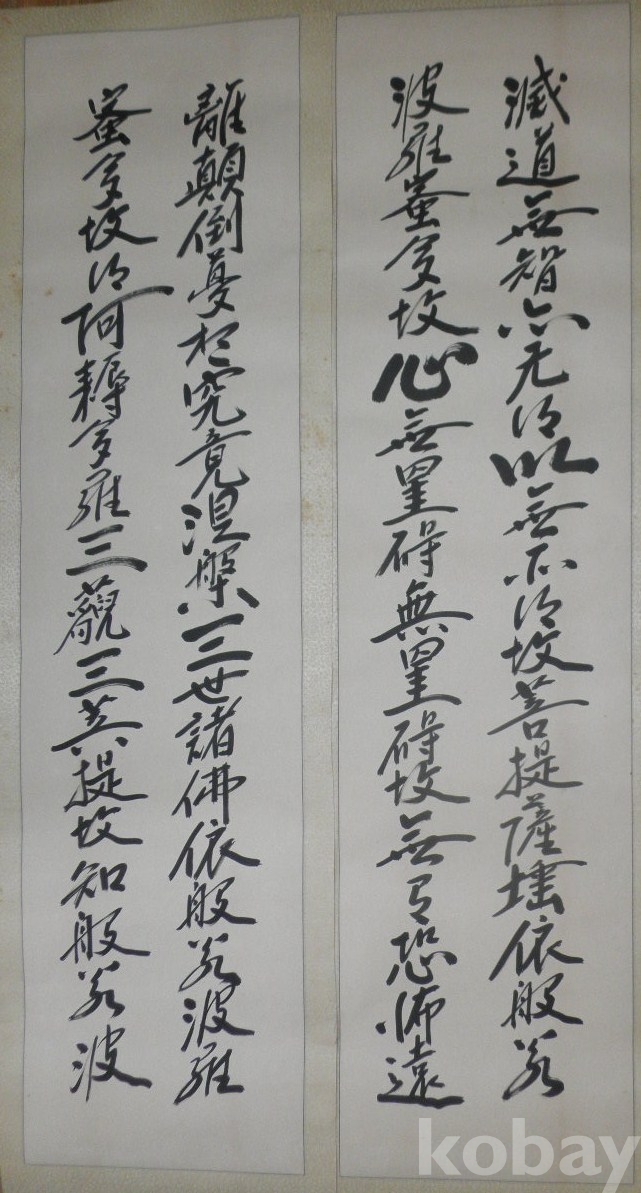 滅道無智亦无得以無所得故菩提薩埵依般若
波羅蜜多故心無罣碍無罣碍故無有恐怖遠
離顛倒夢想究竟涅槃三世諸佛依般若波羅
蜜多故得阿耨多羅三藐三菩提故知般若波
kobay